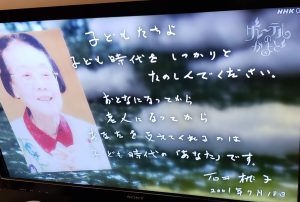 NHK
グレーテルのかまど
子どもたちよ
子ども時代を しっかりと
たのしんでください。
おとなになってから
老人になってから
あなたを支えてくれるのは
子ども時代の「あなた」です。
石井桃子
2001年7月18日
SONY